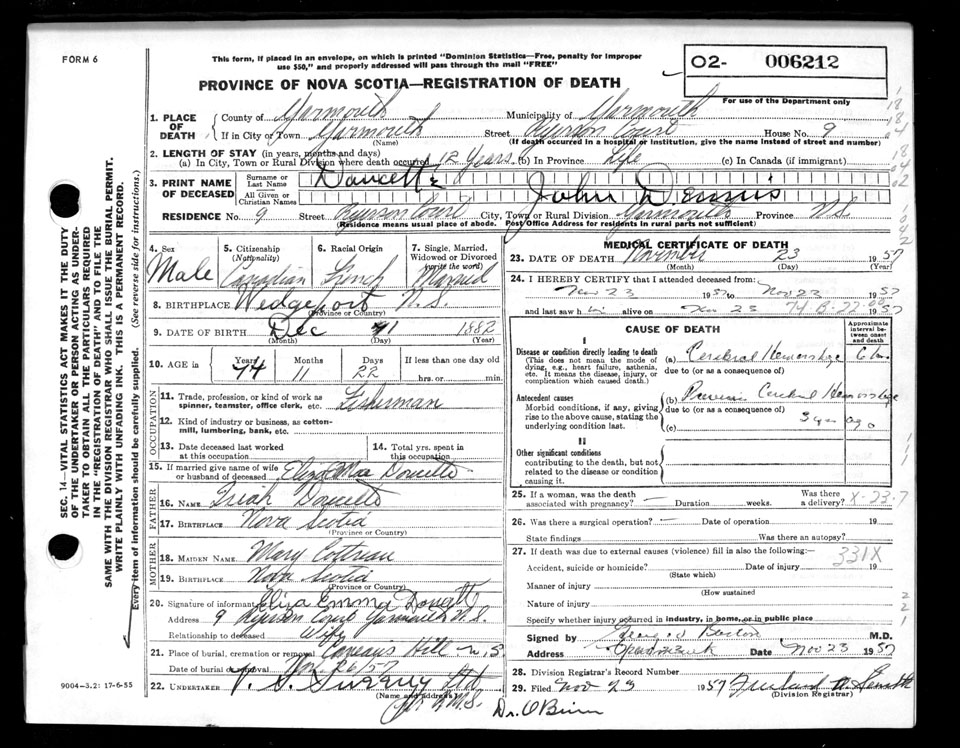 FORM 6
This form, if placed in an envelope, on which is printed "Dominion Statistics—Free, penalty for improper
use $50," and properly addressed will pass through the mail "FREE"
PROVINCE OF NOVA SCOTIA—REGISTRATION OF DEATH
O2- 006212
For use of the Department only
1. PLACE OF DEATH
County of Yarmouth Municipality of Yarmouth
If in City or Town Yarmouth Street Ryerson Court House No. 9
(Name) (If death occurred in a hospital or institution, give the name instead of street and number)
2. LENGTH OF STAY (in years, months and days)
(a) In City, Town or Rural Division where death occurred 12 Years (b) In Province Life (c) In Canada (if immigrant)
3. PRINT NAME OF DECEASED
Surname or Last Name Doucette
All Given or Christian Names John Dennis
RESIDENCE No. 9 Street Ryerson Court City, Town or Rural Division Yarmouth Province N.S.
(Residence means usual place of abode. Post Office Address for residents in rural parts not sufficient)
4. Sex Male
5. Citizenship (Nationality) Canadian
6. Racial Origin French
7. Single, Married, Widowed or Divorced (write the word) Married
8. BIRTHPLACE Wedgeport N.S.
(Province or Country)
9. DATE OF BIRTH Dec 1 1882
(Month) (Day) (Year)
10. AGE in Years 74 Months 11 Days 22 If less than one day old
hrs. or min.
OCCUPATION
11. Trade, profession, or kind of work as spinner, teamster, office clerk, etc. Fisherman
12. Kind of industry or business, as cotton-mill, lumbering, bank, etc.
13. Date deceased last worked at this occupation
14. Total yrs. spent in this occupation
15. If married give name of wife or husband of deceased Doucette
FATHER
16. NAME Doucette
17. BIRTHPLACE Nova Scotia
(Province or Country)
MOTHER
18. MAIDEN NAME Mary Cottreau
19. BIRTHPLACE Nova Scotia
(Province or Country)
20. Signature of informant Eliza Emma Doucette
Address 9 Ryerson Court Yarmouth N.S.
Relationship to deceased Wife
21. Place of burial, cremation or removal Comeaus Hill N.S.
Date of burial or removal Nov 26/57
22. UNDERTAKER V. S. Sweeny
(Name and address)
9004—3.2: 17-6-55
SEC. 14—VITAL STATISTICS ACT MAKES IT THE DUTY
OF THE UNDERTAKER OR PERSON ACTING AS UNDER-
TAKER TO OBTAIN ALL THE PARTICULARS REQUIRED
IN THE "REGISTRATION OF DEATH" AND TO FILE THE
SAME WITH THE DIVISION REGISTRAR WHO SHALL ISSUE THE BURIAL PERMIT.
WRITE PLAINLY WITH UNFADING INK. THIS IS A PERMANENT RECORD.
Every item of information should be carefully supplied. (See reverse side for instructions.)
MEDICAL CERTIFICATE OF DEATH
23. DATE OF DEATH November 23 1957
(Month) (Day) (Year)
24. I HEREBY CERTIFY that I attended deceased from:
Nov 23 1957 to Nov 23 1957
and last saw h im alive on Nov 23
CAUSE OF DEATH
Approximate interval between onset and death
I
Disease or condition directly leading to death
(This does not mean the mode of dying, e.g., heart failure, asthenia, etc. It means the disease, injury, or complication which caused death.)
(a) Cerebral Hemorrhage
due to (or as a consequence of)
Antecedent causes
Morbid conditions, if any, giving rise to the above cause, stating the underlying condition last.
(b) Previous Cerebral Hemorrhage
due to (or as a consequence of)
(c) 3 yrs ago
II
Other significant conditions
contributing to the death, but not related to the disease or condition causing it.
25. If a woman, was the death associated with pregnancy? — Duration weeks. Was there a delivery? X-23-7
26. Was there a surgical operation? — Date of operation 19
State findings Was there an autopsy?
27. If death was due to external causes (violence) fill in also the following:— 331X
Accident, suicide or homicide? Date of injury 19
(State which)
Manner of injury
(How sustained
Nature of injury
Specify whether injury occurred in industry, in home, or in public place
Signed by Burton M.D.
Address Date Nov 23 1957
28. Division Registrar's Record Number
29. Filed Nov 23 1957
(Division Registrar)
Dr. O'Brien